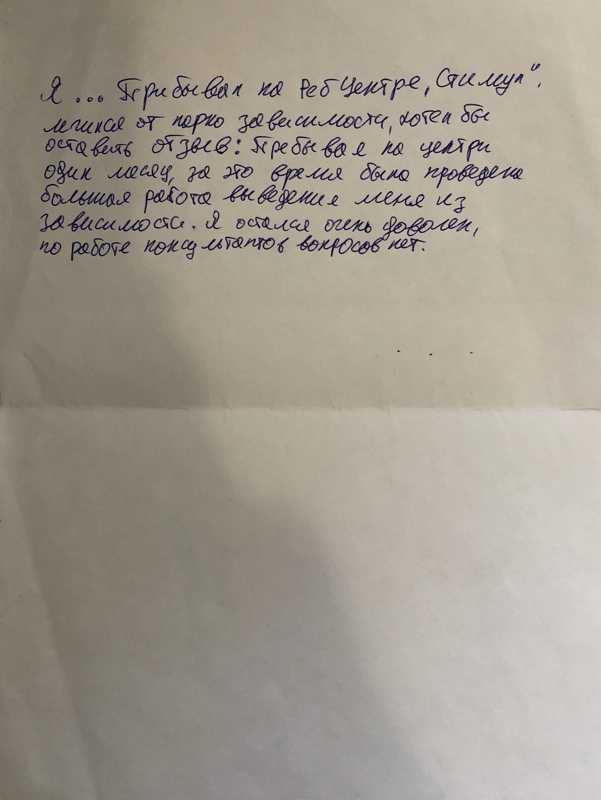 Я ... Прибывал на Реб Центре „Стимул",
лечился от нарко зависимости, хотел бы
оставить отзыв: Пребывая на центри
один месяц, за это время была проведена
большая работа выведение меня из
зависимости. Я остался очень доволен,
по работе консультантов вопросов нет.